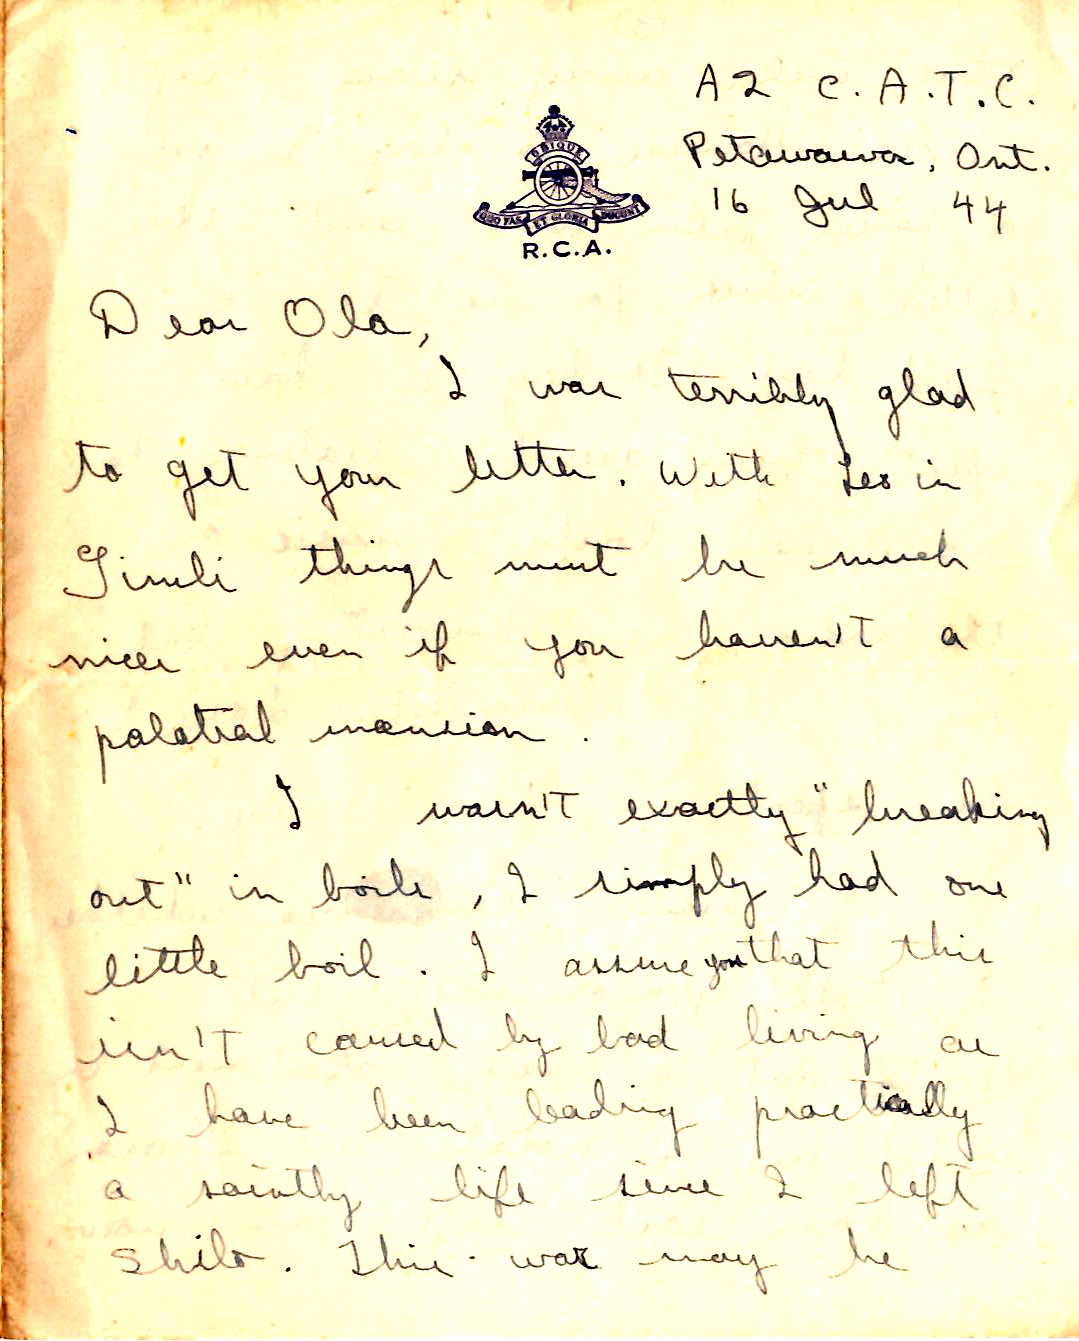 A2 C.A.T.C.
Petawawa, Ont.
16 Jul 44
UBIQUE
QUO FAS ET GLORIA DUCUNT
R.C.A.
Dear Ola,
I was terribly glad
to get your letter. With Les in
Gimli things must be much
nicer even if you haven't a
palatial mansion.
I wasn't exactly "breaking
out" in boils, I simply had one
little boil. I assure you that this
isn't caused by bad living as
I have been leading practically
a saintly life since I left
Shilo. This war may be